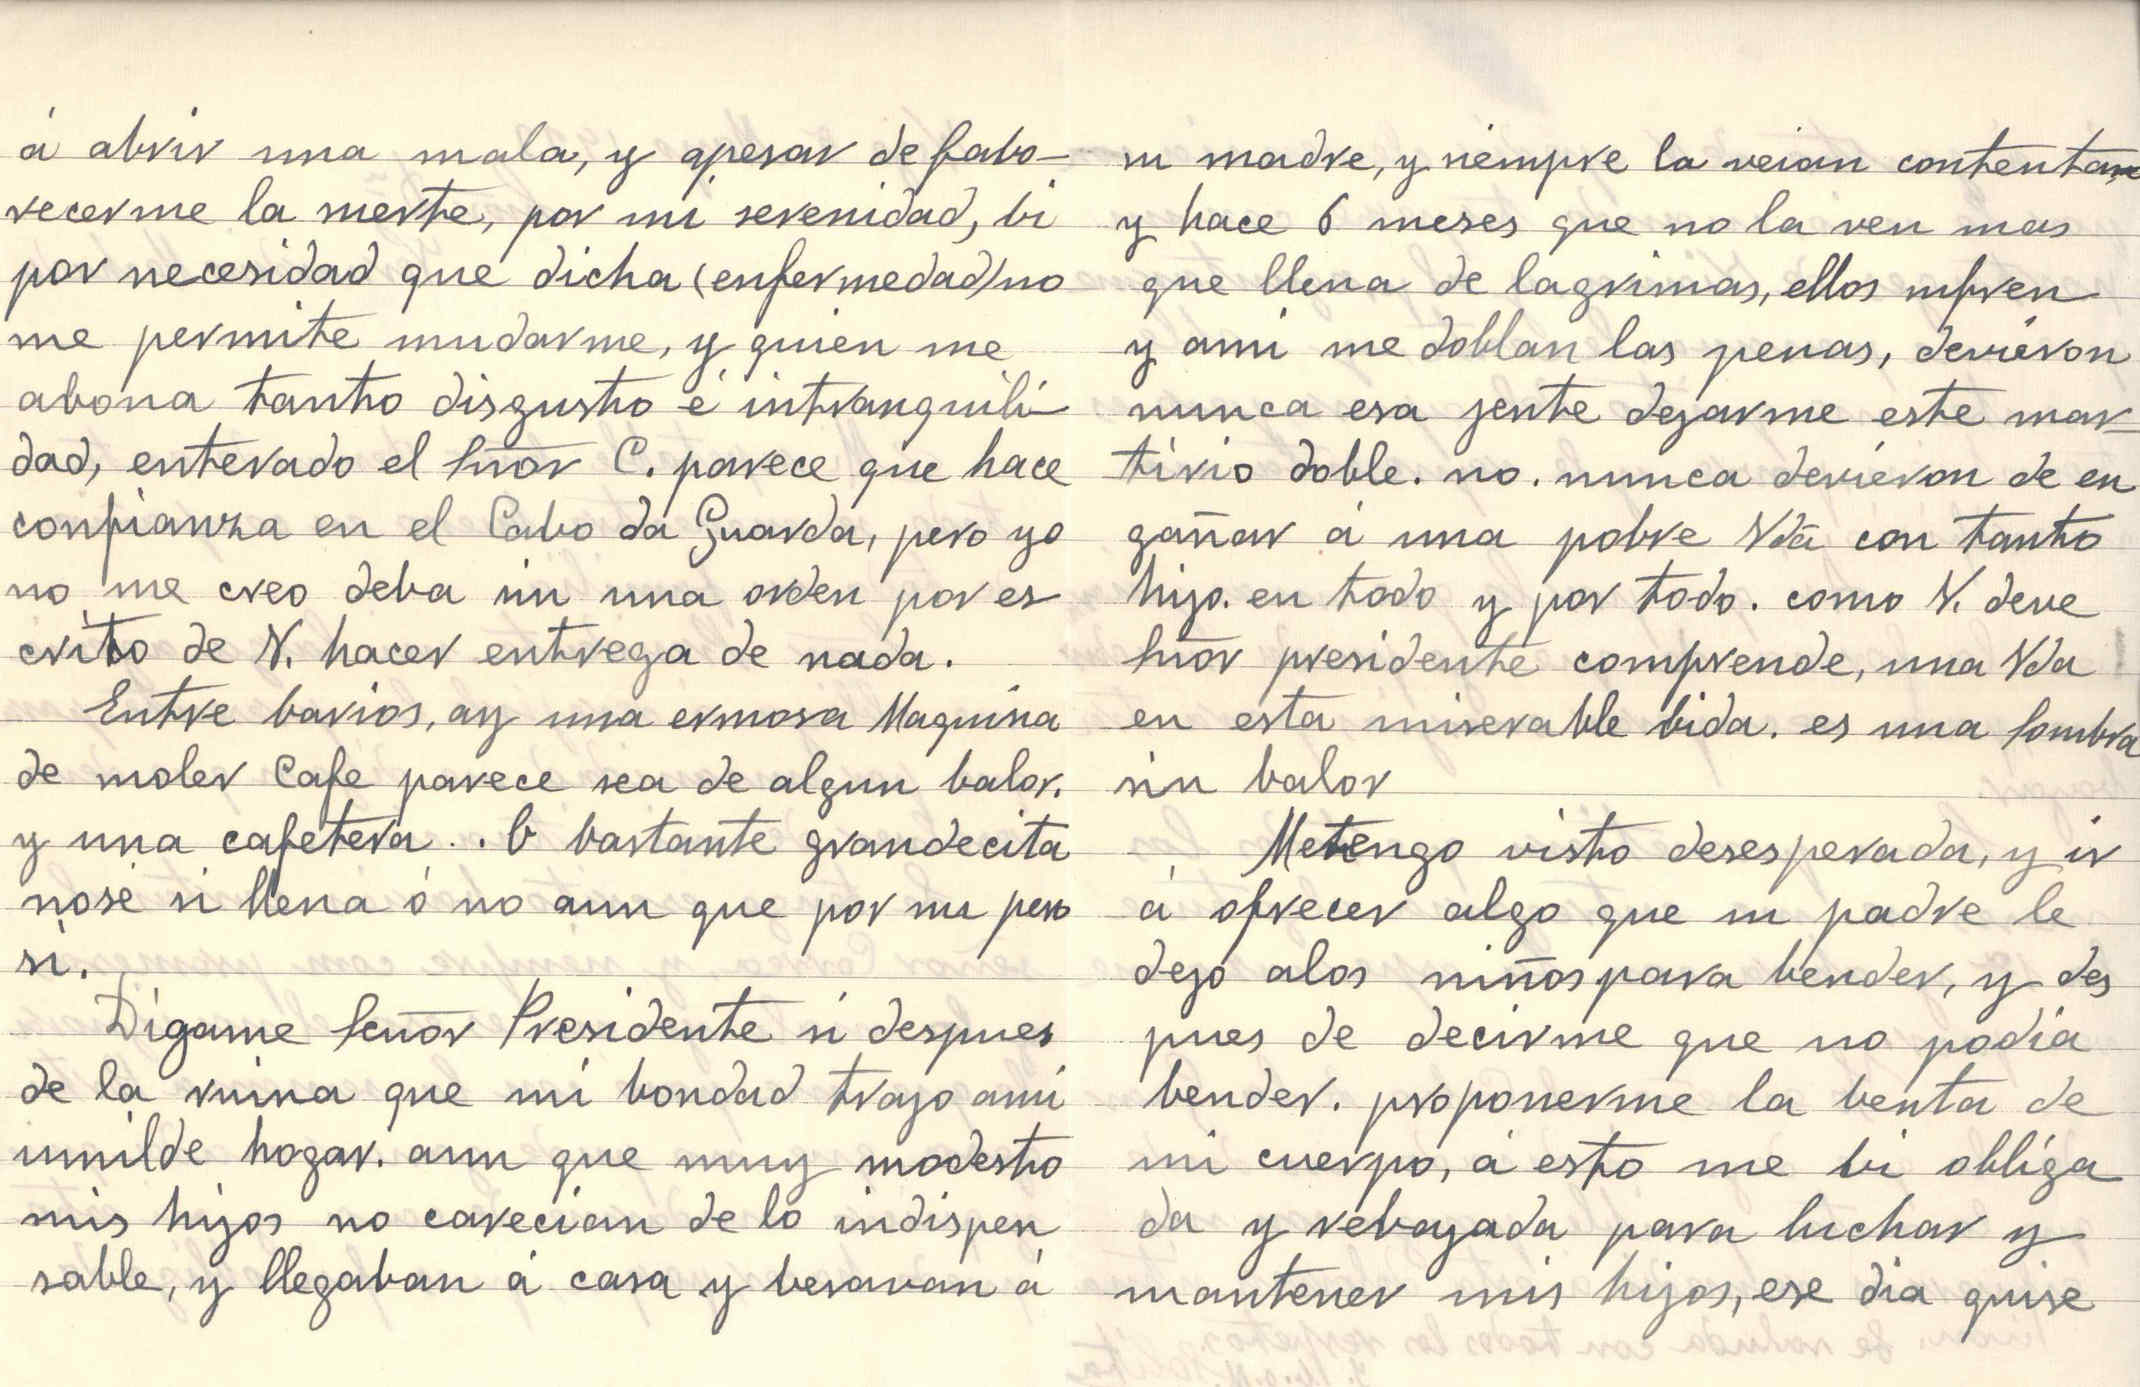 á abrir una mala, y apesar de fabo-
recerme la suerte, por mi serenidad, bi
por necesidad que dicha (enfermedad) no
me permite mudarme, y quien me
abona tanto disgusto é intranquili-
dad, enterado el Sñor C. parece que hace
confianza en el Cabo da Guarda, pero yo
no me creo deba sin una orden por es
crito de V. hacer entrega de nada.
Entre barios, ay una ermosa Maquina
de moler Cafe parece sea de algun balor.
y una cafetera . . bastante grandecita
nosé si llena ó no aun que por su peso
si.
Digame Señor Presidente si despues
de la ruina que mi bondad trajo ami
umilde hogar. aun que muy modesto
mis hijos no carecian de lo indispen
sable, y llegaban á casa y besavan á
su madre, y siempre la veian contenta
y hace 6 meses que no la ven mas
que llena de lagrimas, ellos sufren
y ami me doblan las penas, devieron
nunca esa jente dejarme este mar-
tirio doble. no. nunca devieron de en
gañar á una pobre Vda con tanto
hijo. en todo y por todo. como V. deve
Sñor presidente comprende, una Vda
en esta miserable bida. es una Sombra
sin balor
Metengo visto desesperada, y ir
á ofrecer algo que su padre le
dejo alos niños para bender, y des
pues de decirme que no podia
bender. proponerme la benta de
mi cuerpo, á esto me bi obliga
da y rebajada para luchar y
mantener mis hijos, ese dia quise